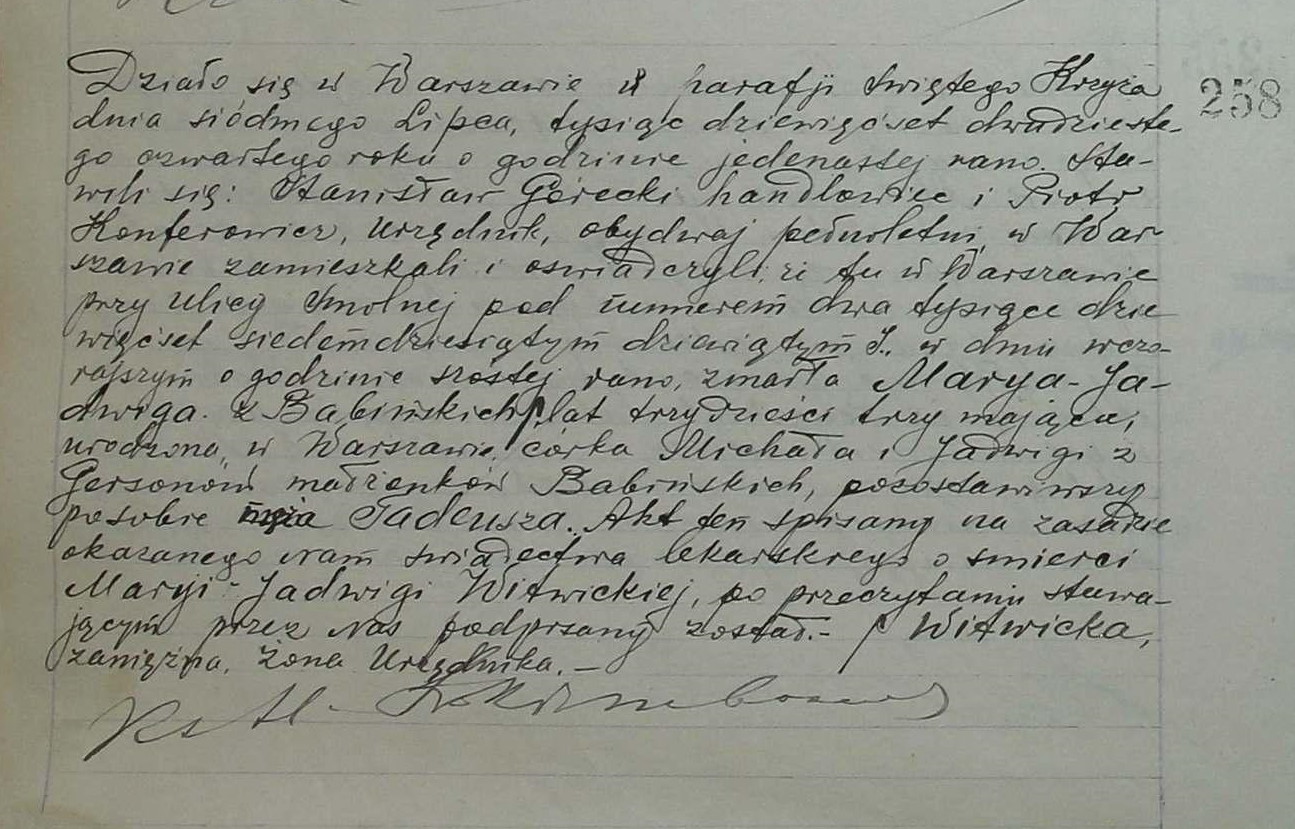 Działo się w Warszawie w parafji świętego Krzyża
258
dnia siódmego Lipca, tysiąc dziewięćset dwudzieste-
go czwartego roku o godzinie jedenastej rano. Sta-
wili się: Stanisław Górecki handlowiec i Piotr
Konferowicz, urzędnik, obydwaj pełnoletni, w War
szawie zamieszkali i oświadczyli, że tu w Warszawie
przy ulicy Smolnej pod numerem dwa tysiące dzie
więćset siedemdziesiątym dziewiątym J., w dniu wczo-
rajszym o godzinie szóstej rano, zmarła Marya-Ja-
dwiga. z Babińskich lat trzydzieści trzy mająca,
urodzona, w Warszawie, córka Michała i Jadwigi z
Gersonów małżonków Babińskich, pozostawiwszy
po sobie męża Tadeusza. Akt ten spisany na zasadzie
okazanego Nam świadectwa lekarskiego o śmierci
Maryi-Jadwigi Witwickiej, po przeczytaniu stawa-
jącym przez Nas podpisany został.- Witwicka,
zamężna, żona Urzędnika.-